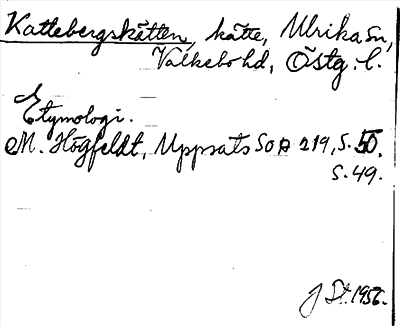 Kattebergskätten, kätte, Ulrika sn,
Valkebo hd, Östg. l.
Etymologi.
M. Högfeldt, Uppsats SOÄ 219, S. 50.
S. 49.
J St. 1956.